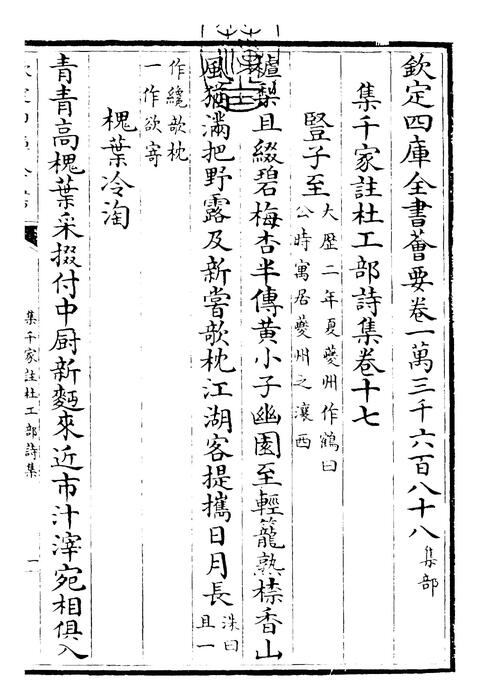 欽定四庫全書薈要卷一萬三千六百八十八 集部
集千家註杜工部詩集卷十七
豎子至 大歴二年夏夔州作鶴曰
公時寓居夔州之瀼西
樝棃且綴碧梅杏半傳黄小子幽園至輕籠熟㮈香山
風猶滿把野露及新嘗欹枕江湖客提攜日月長 洙曰
且一
作纔欹枕
一作欲寄
槐葉冷淘
青青高槐葉采掇付中厨新麵來近市汁滓宛相俱入
集千家註杜工部詩集
一